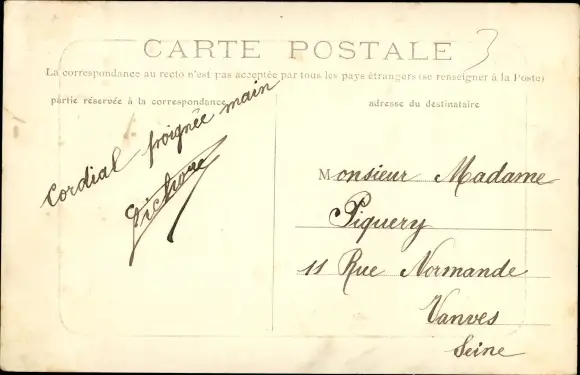 CARTE POSTALE
3
La correspondance au recto n'est pas acceptée par tous les pays étrangers (se renseigner à la Poste)
partie réservée à la correspondance
adresse du destinataire
Cordial poignée main
Monsieur Madame
Piquery
11 Rue Normande
Vanves
Seine